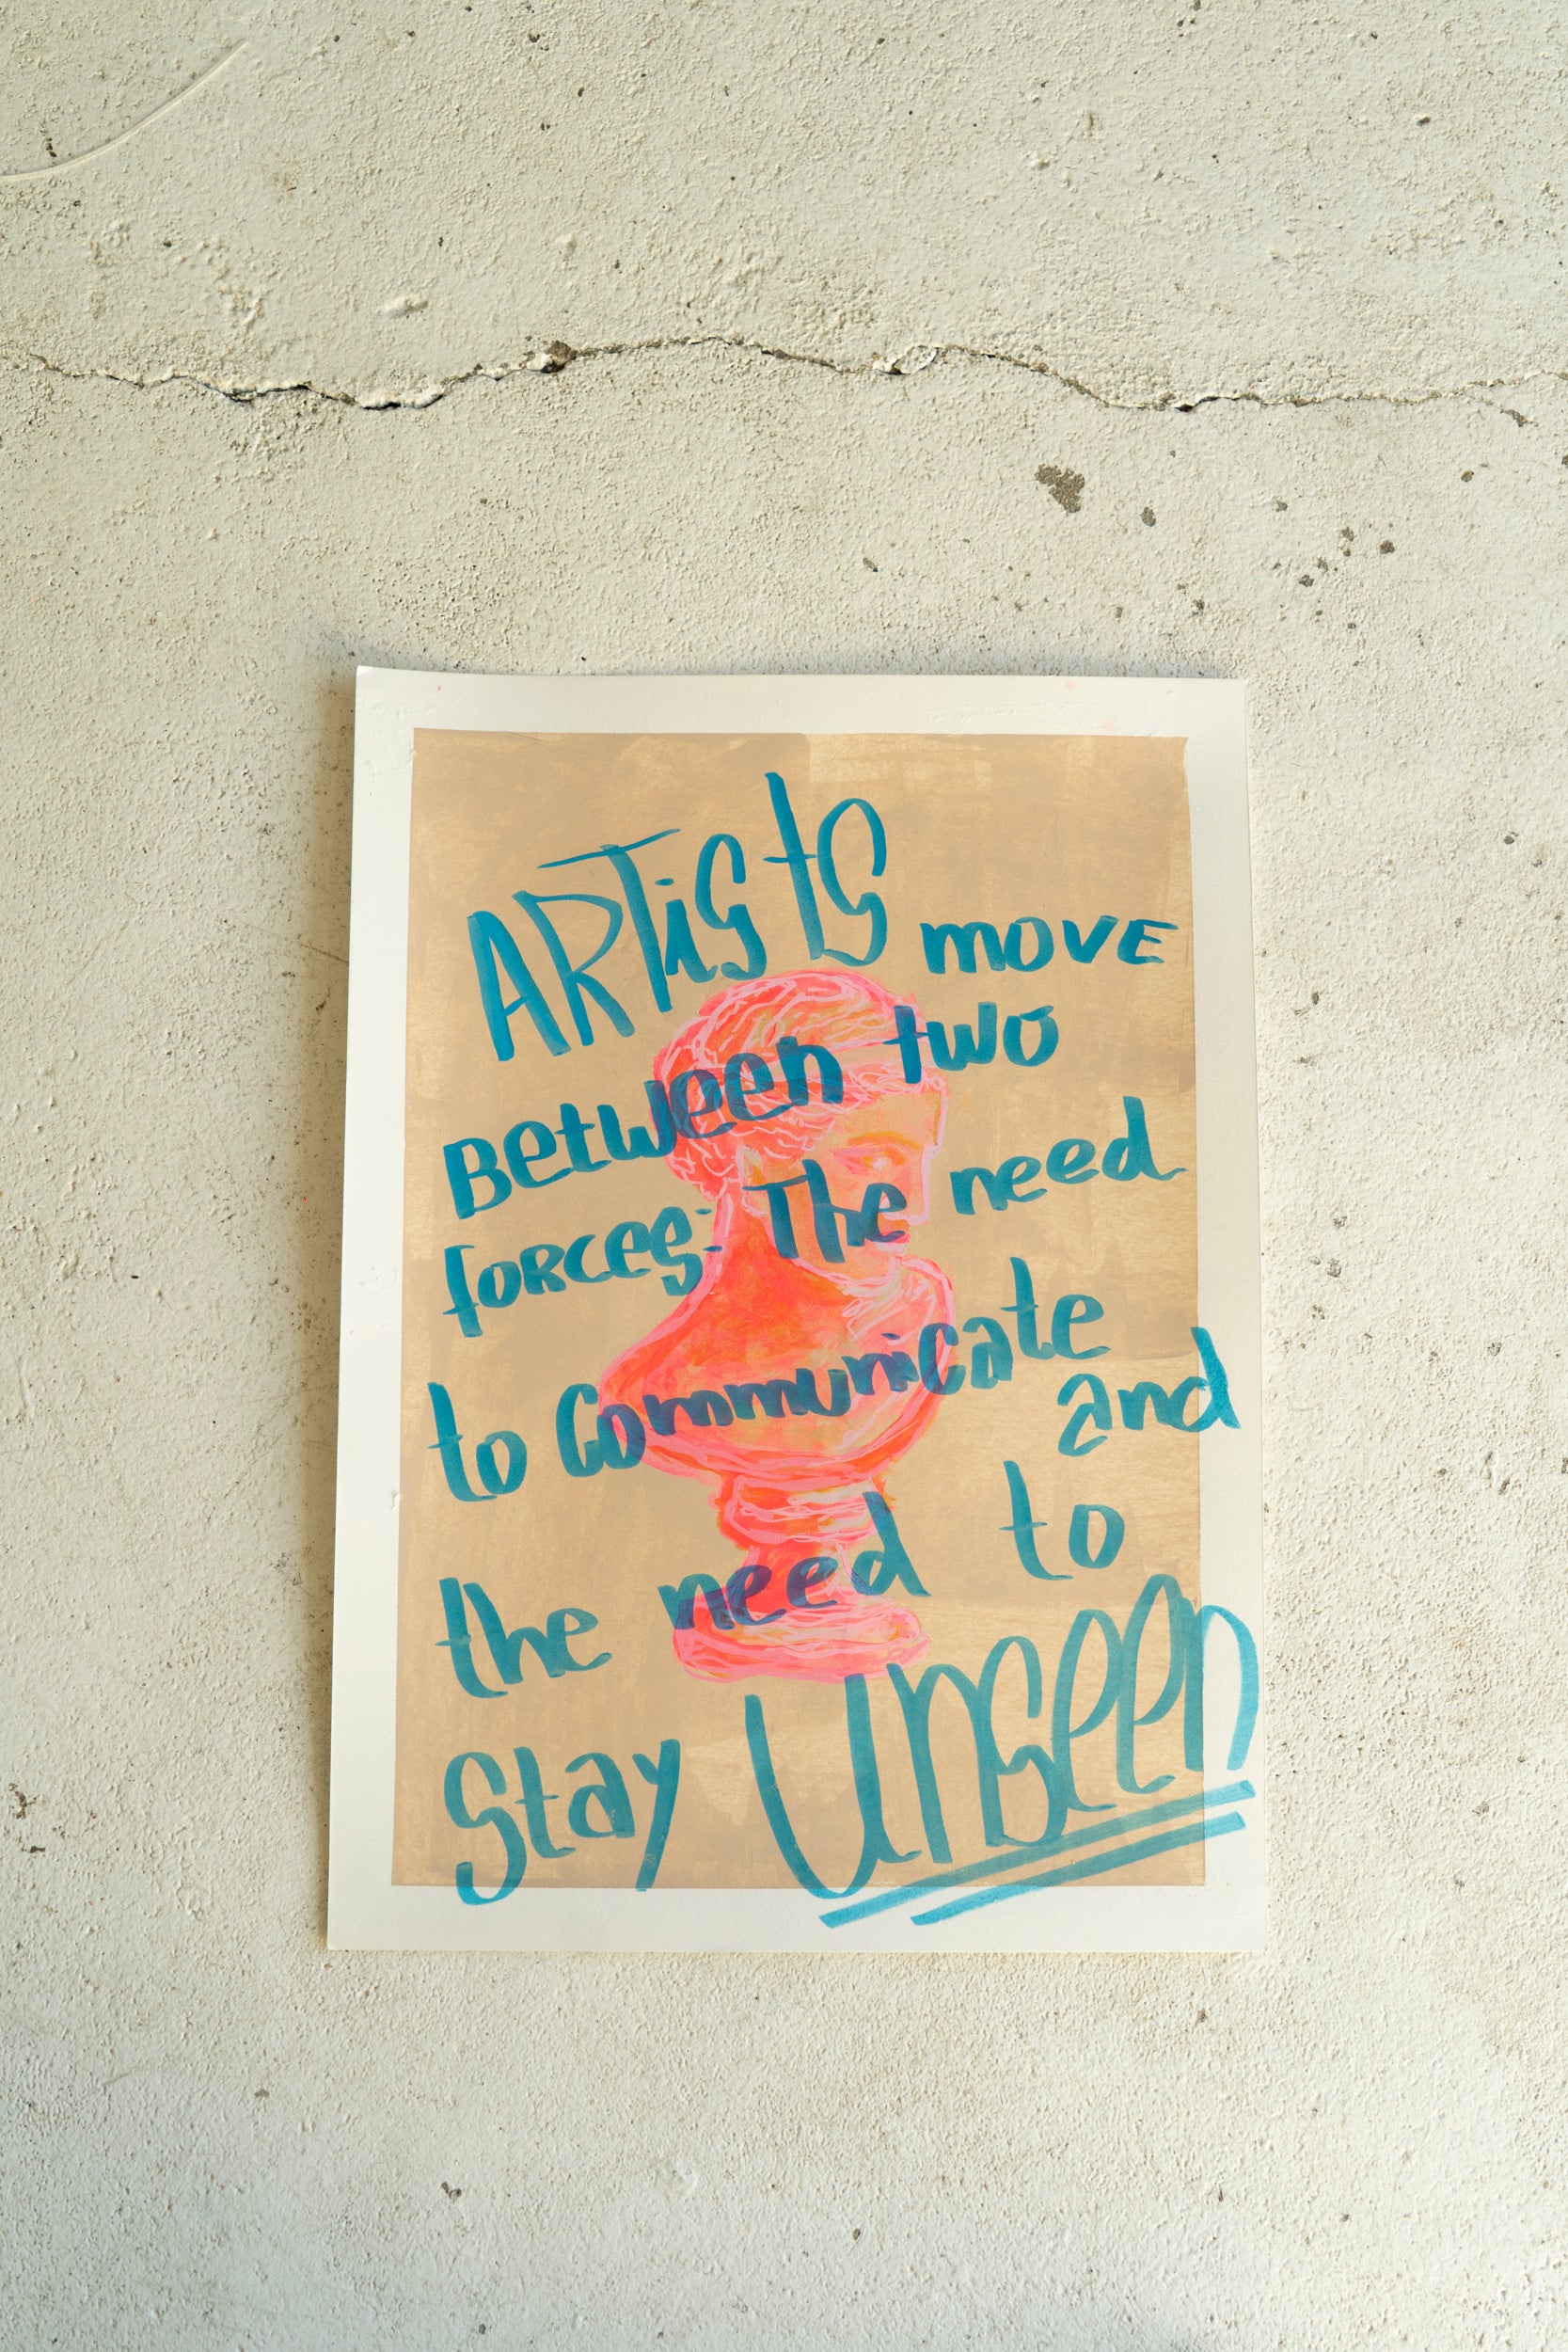 ARTists move
Between two
forces: The need
to Communicate
and
the need to
Stay Unseen